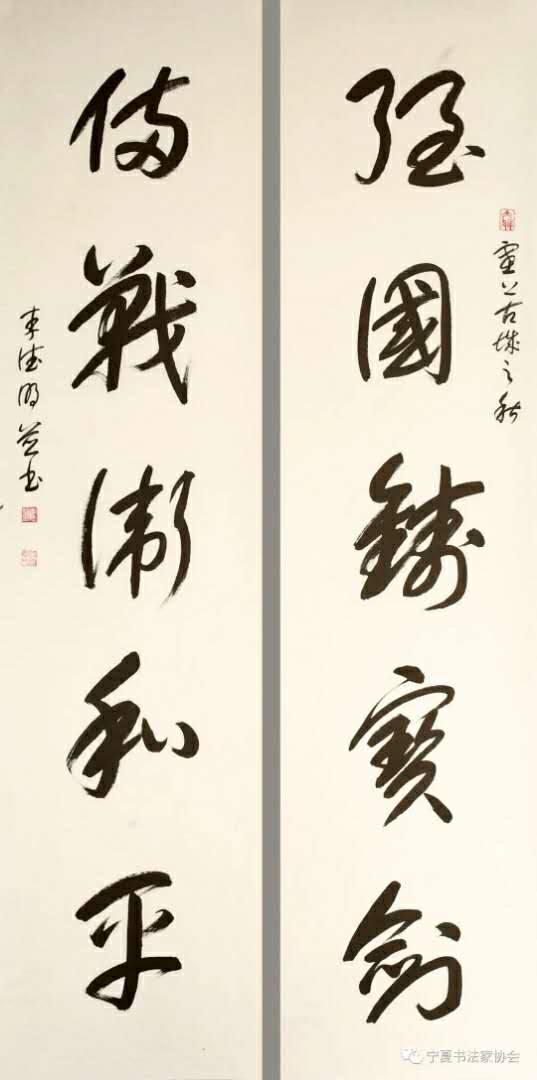 古城之秋
強國鑄寶劍
備戰衛和平
德明並书
宁夏书法家协会